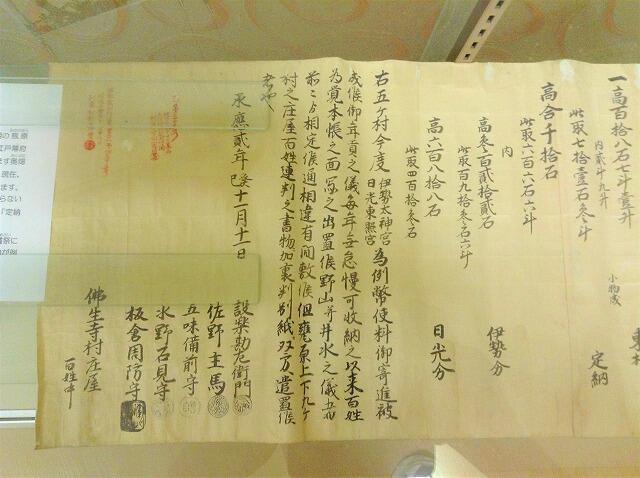 一高百十八石七斗壹升
内貳斗九升
此取七拾壹石参斗
小物成
定納
高合千拾石
此取六百六石六斗
内
高参百貳拾貳石
伊勢分
此取百九拾参石六斗
高六百八拾八石
日光分
此取四百拾参石
右五ヶ村今度伊勢太神宮日光東照宮為例幣使料御寄進被
成候御年貢之儀每年無怠慢可收納之以来百姓
為覚本帳之面寫之出置候野山并井水之儀者
前々ゟ相定候通相違有間敷候但甕原上下九ヶ
村之庄屋百姓連判之書物加裏判別紙双方遣置候
者也
承應貳年癸巳十一月十一日
設楽勘左衛門
佐野主馬
五味備前守
水野石見守
板倉周防守
佛生寺村庄屋
百姓中
の瓶原
江戸幕府
現在、
ます。
らない
「定納